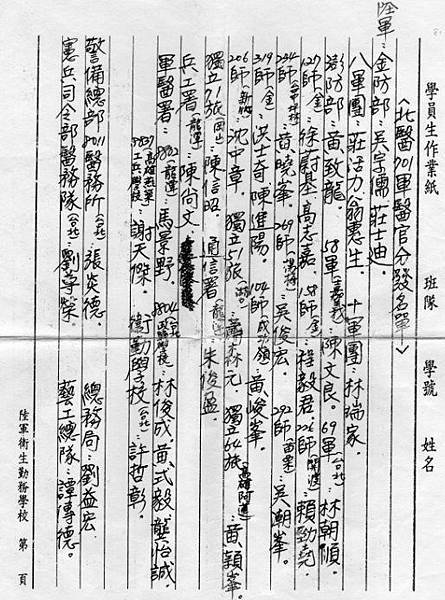 學員生作業紙 班隊 學號 姓名
<北醫901軍醫官分發名單>
陸軍:金防部:吳宇儒、莊士迪。
八軍團:莊活力、翁憲生。十軍團:林端家。
澎防部:黃致龍。58軍(嘉義):陳文良。69軍(台北):林朝順。
127師(金):徐尉基、高志嘉。158師(金):程毅君。226師(關渡):賴勁堯。
284師:黃曉峯。269師:吳俊宏。292師(苗栗):吳潮峯。
319師(金):洪士奇、陳進陽。104師(成功嶺):黃峻峯。
206師:沈中章。獨立51旅:森元。獨立64旅:黃穎峯。
獨立71旅:陳信昭。通信署(龍潭):朱俊盈。
兵工署(龍潭):陳尚文
軍醫署:8802(龍潭):馬景野。8804(台北):林俊成、黃式毅、龔怡誠。
謝天傑。衛勤學校(台北):許哲彰。
警備總部8011醫務所(台北):張炎德。總務局:劉益宏
憲兵司令部醫務隊(台北):劉榮。藝工總隊:譚傳德。
陸軍衛生勤務學校 第 頁